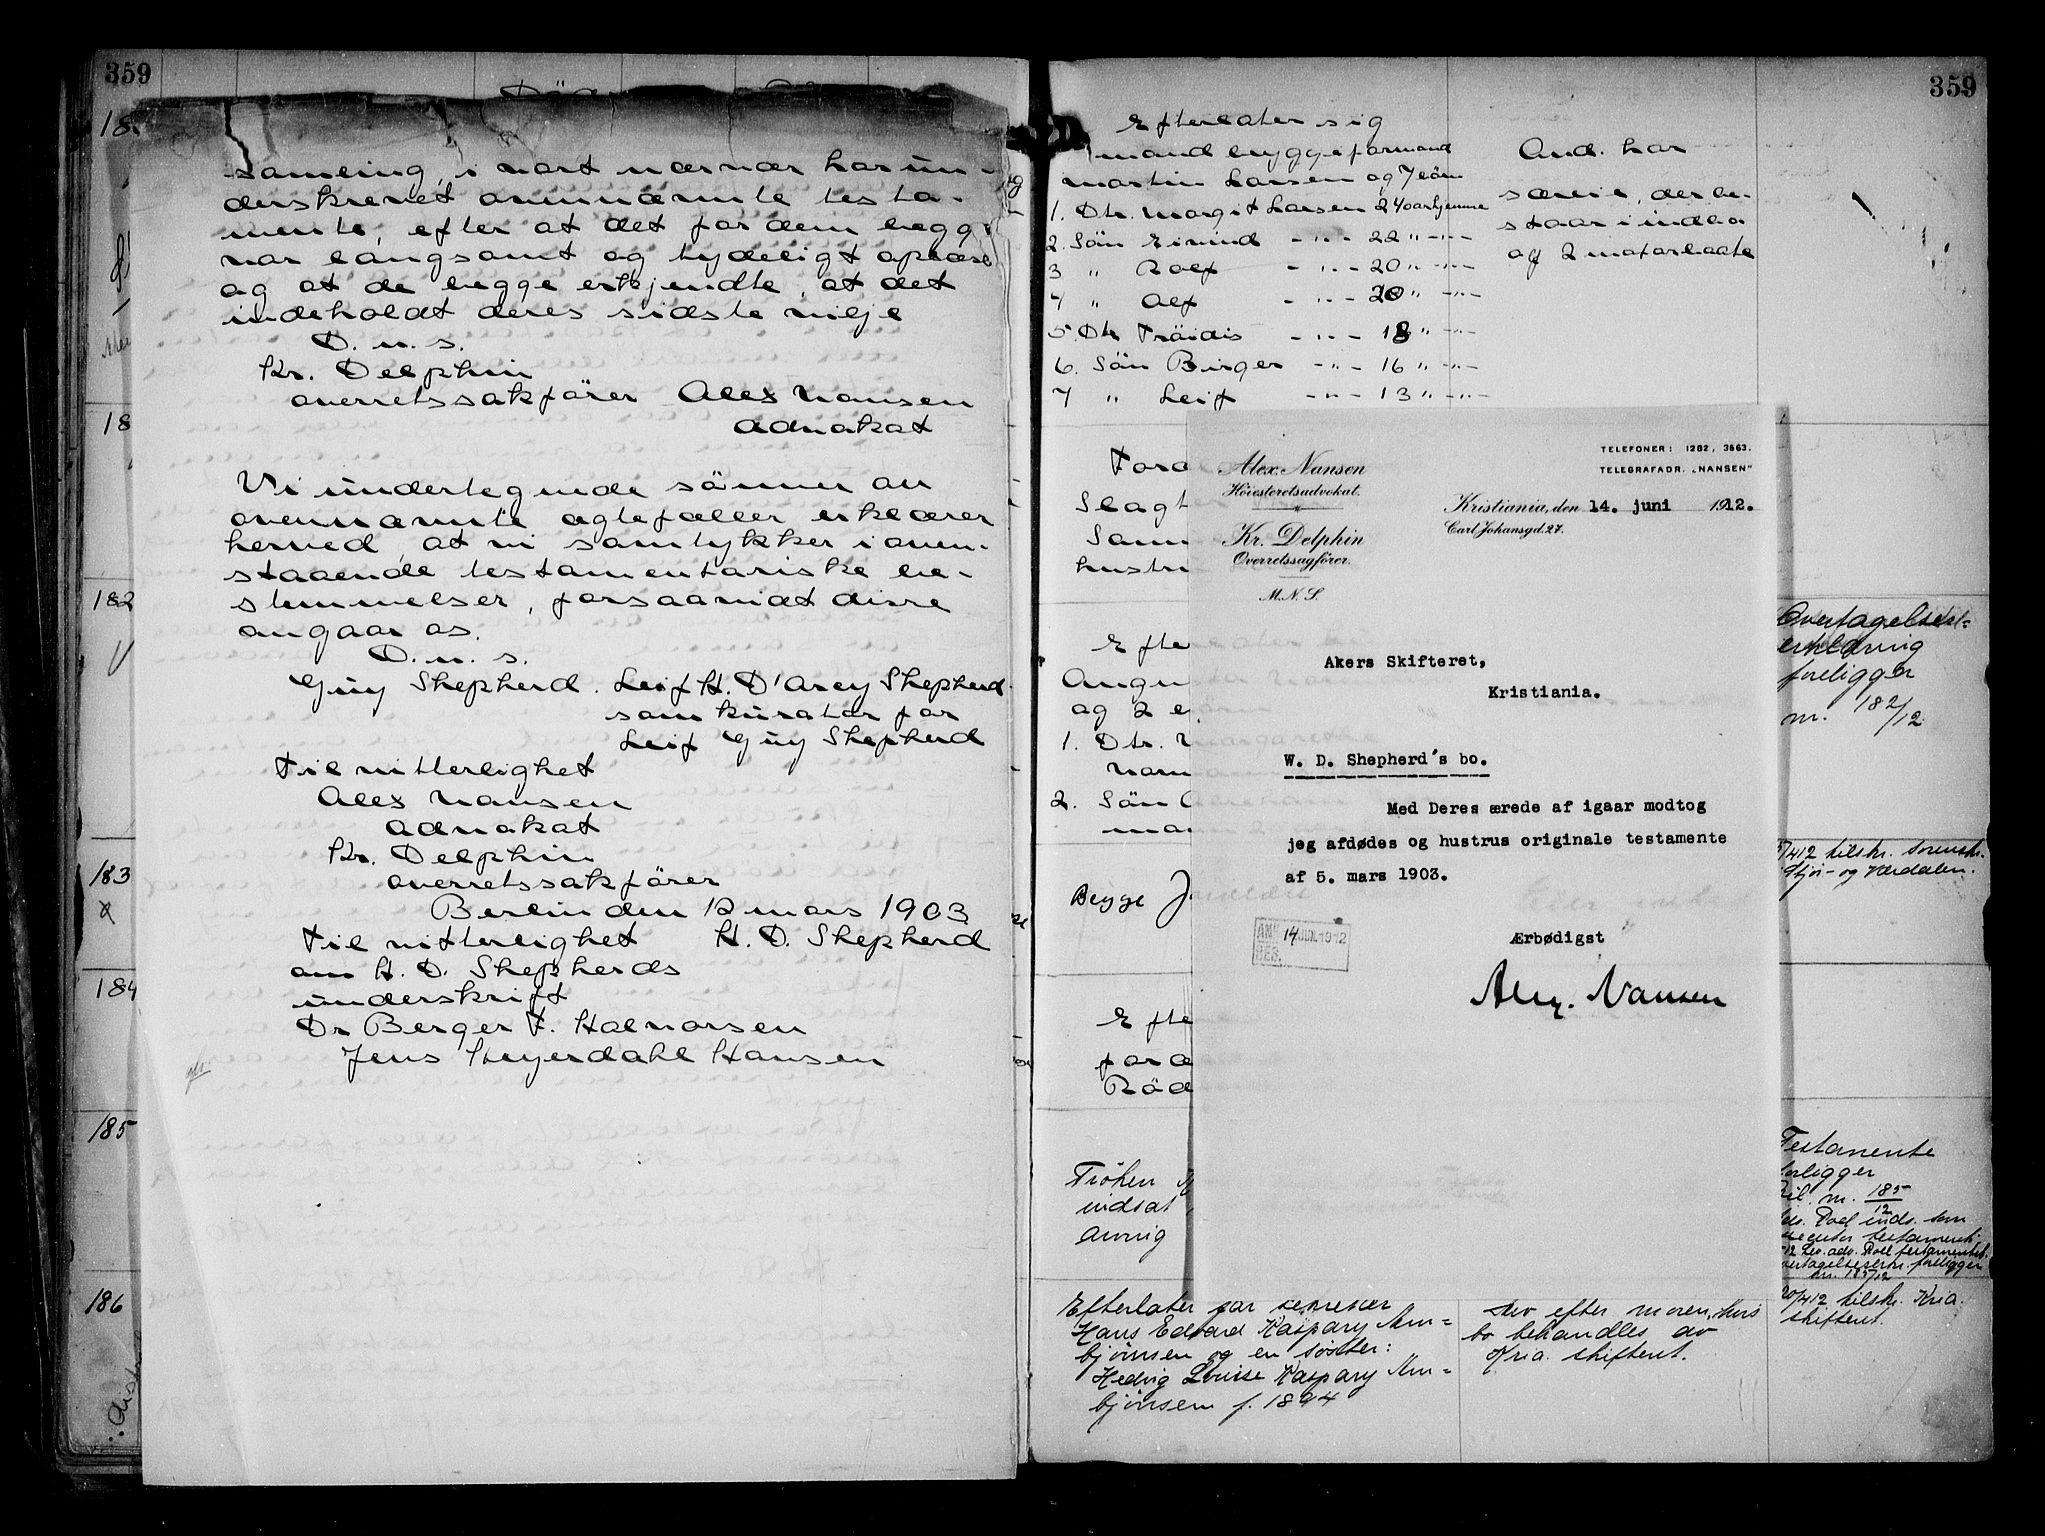 359
samling, i vort nærvær har un-
derskrevet ovennævnte testa-
mente, efter at det for dem begge
var langsomt og tydeligt oplæst
og at de begge erkjendte, at det
indeholdt deres sidste vilje
D. u. s.
Kr. Delphin
overretssakfører Alex Nansen
advokat
Vi undertegnede sönner av
ovennævnte egtefæller erklærer
herved, at vi samtykker i oven-
staaende testamentariske be-
stemmelser, forsaavidt disse
angaar os.
D. u. s.
Guy Shepherd. Leif H. D'Arcy Shepherd.
som kurator for
Leif Guy Shepherd
Til vitterlighet
Alex Nansen
advokat
Kr. Delphin
overretssakfører
Berlin den 12 mars 1903
Til vitterlighet H. D. Shepherd
om H. D. Shepherds
underskrift
Dr Berger F. Halvorsen
Jens Heyerdahl Hansen
18
18
182
183
184
185
186
359
Efterlater sig
mand byggeformand
Martin Larsen og 7 börn
1. Dtr. Margit Larsen 24 aar hjemme
2. Sön Eivind - " - 22 " - " -
3 " Rolf - " - 20 " - " -
4 " Alf - " - 20 " - " -
5. Dtr Fröidis - " - 18 " - " -
6. Sön Birger - " - 16 " - " -
7 " Leif - " - 13 " - " -
And. har
særeie, der be-
staar i indbo
og 2 motorbaate
Slagt
hustru
Efte
og 2
1. Dtr.
2. Sön
Begge
Efte
Röd
Frøken
indsat
Alex. Nansen
Høiesteretsadvokat.
Kr. Delphin
Overretssagfører.
M. N. S.
TELEFONER: 1282, 3663.
TELEGRAFADR. „NANSEN"
Kristiania, den 14. juni 1912.
Carl Johansgd. 27.
Akers Skifteret,
Kristiania.
W. D. Shepherd's bo.
Med Deres ærede af igaar modtog
jeg afdødes og hustrus originale testamente
af 5. mars 1903.
14 JUN. 1912
Ærbødigst
Alex. Nansen
Overtagelses-
erklæring
foreligger
nr. 182/12
Testamente
foreligger
bil. nr. 185/12
20/4 12 tilskr. Kria.
skifteret.
Efterlater sig
Hans Edvard Kaspary Arn-
bjørnsen og en søster:
Hedvig Louise Kaspary Arn-
bjørnsen f. 1894
Arv efter moren, hvis
bo behandles av
Kria. skifteret.